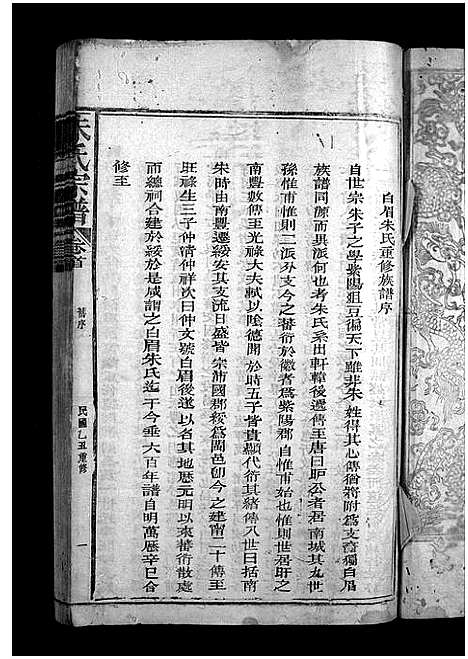 白眉朱氏重修族譜序
自世宗 朱子之學紫陽俎豆徧天下雖非朱姓得其心傳猶將附爲支裔獨白眉
族譜同源而異派何也考朱氏系出軒轅後遞傳至唐曰 公者居南城其九世
孫惟甫惟則二派分支今之蕃衍於徽者爲紫陽郡自惟甫始也惟則世居盱之
南豐數傳至光祿大夫軾以陰德聞於時五子皆貴顯代衍其緒傳八世曰括南
宋時由南豐遷綏安其支流日盛皆宗沛國郡綏爲岡邑卽今之建甯二十傳至
旺祿生三子仲清仲祥次曰仲文號白眉後遂以名其地歷元明以來蕃衍散處
而總祠合建於綏於是咸謂之白眉朱氏迄于今垂六百年譜自明萬歷辛巳合
修至
朱氏宗譜
卷首
舊序
民國乙丑重修
一